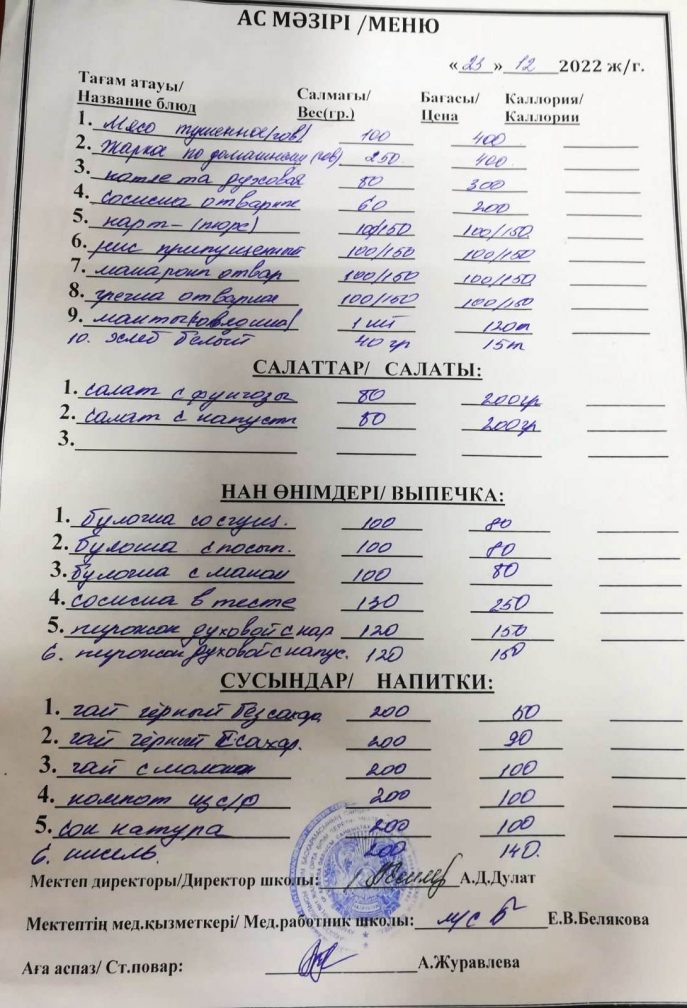 АС МӘЗІРІ /МЕНЮ
«23» 12 2022 ж/г.
Тағам атауы/ Салмағы/ Бағасы/ Каллория/
Название блюд Вес(гр.) Цена Каллории
1. Мясо тушенное(гов) 100 400
2. Жарка по домашнему (гов) 250 400
3. котлета духовая 80 300
4. сосиска отварная 60 200
5. карт-(пюре) 100/150 100/150
6. рис припущенный 100/150 100/150
7. макароны отвар 100/150 100/150
8. гречка отварная 100/150 100/150
9. манты 1 шт 120т
10. хлеб белый 40 гр 15т
САЛАТТАР/ САЛАТЫ:
1. салат с фунчозы 80 200гр
2. салат с капусты 80 200гр
3.
НАН ӨНІМДЕРІ/ ВЫПЕЧКА:
1. булочка со сгущ. 100 80
2. булочка с посып. 100 80
3. булочка с маком 100 80
4. сосиска в тесте 130 250
5. пирожок духовой с кар 120 150
6. пирожок духовой с капус. 120 150
СУСЫНДАР/ НАПИТКИ:
1. чай чёрный без сахара 200 50
2. чай чёрный с сахар. 200 90
3. чай с молоком 200 100
4. компот из с/ф 200 100
5. сок натура 200 100
6. кисель. 200 140.
Мектеп директоры/Директор школы: А.Д.Дулат
Мектептің мед.қызметкері/ Мед.работник школы: Е.В.Белякова
Аға аспаз/ Ст.повар: А.Журавлева